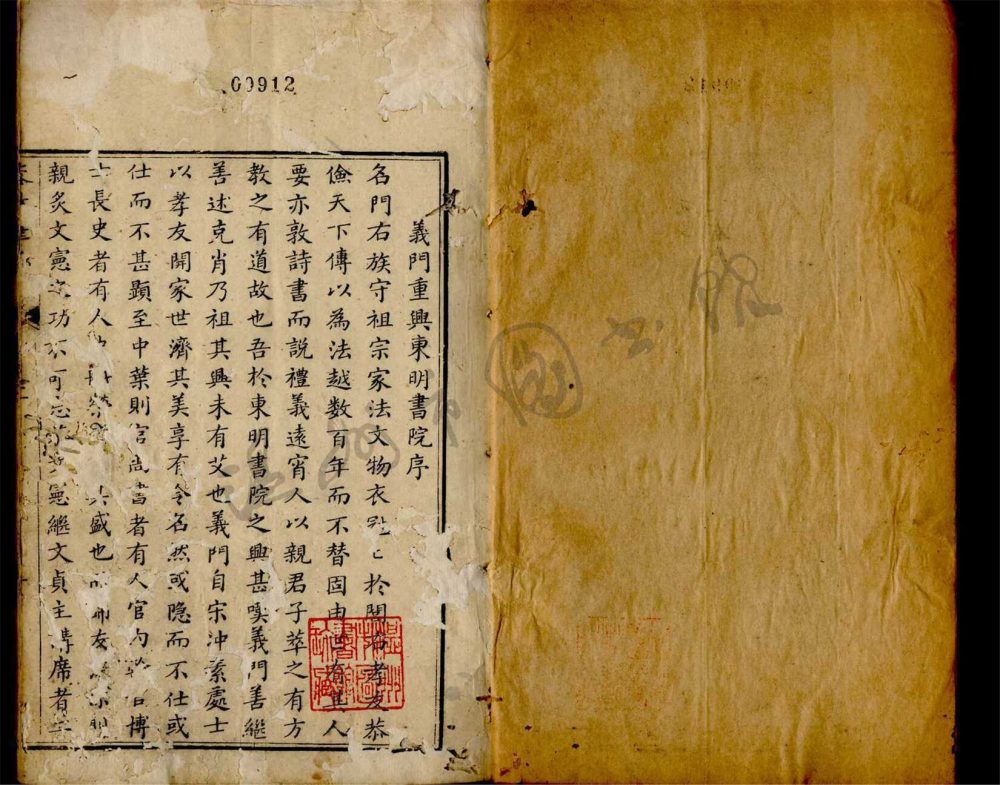 00912
義門重興東明書院序
名門右族守祖宗家法文物衣 於關右孝友恭
儉天下傳以為法越數百年而不替固由 有其人
要亦敦詩書而說禮義遠宵人以親君子萃之有方
教之有道故也吾於東明書院之興甚嘆義門善繼
善述克肖乃祖其興未有艾也義門自宋冲素處士
以孝友開家世濟其美享有令名然或隱而不仕或
仕而不甚顯至中葉則官尚書者有人官內 博
士長史者有人 盛也 師友
親炙文憲之功不可忘 憲繼文貞主講席者